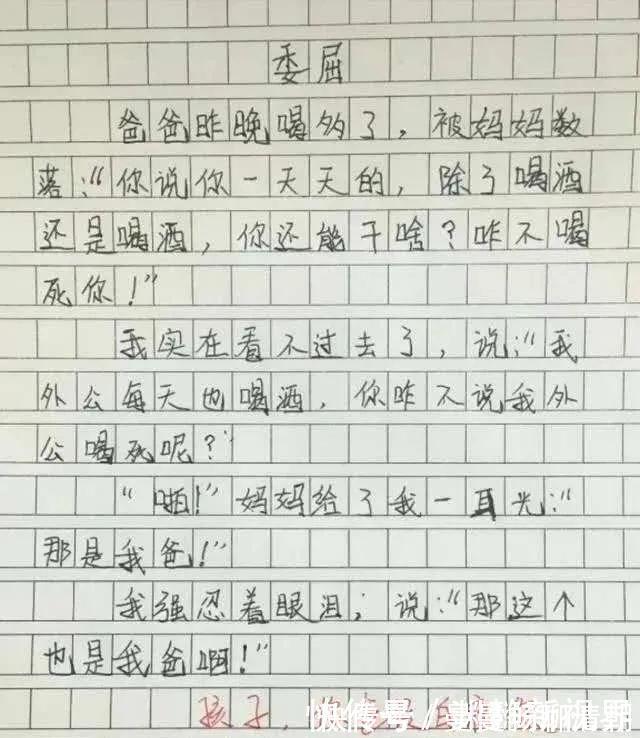 委屈
爸爸昨晚喝多了，被妈妈数
落：“你说你一天天的，除了喝酒
还是喝酒，你还能干啥？咋不喝
死你！”
我实在看不过去了，说：“我
外公每天也喝酒，你咋不说我外
公喝死呢？”
“啪！”妈妈给了我一耳光：“
那是我爸！”
我强忍着眼泪；说：“那这个
也是我爸啊！”
孩子，
快传号／